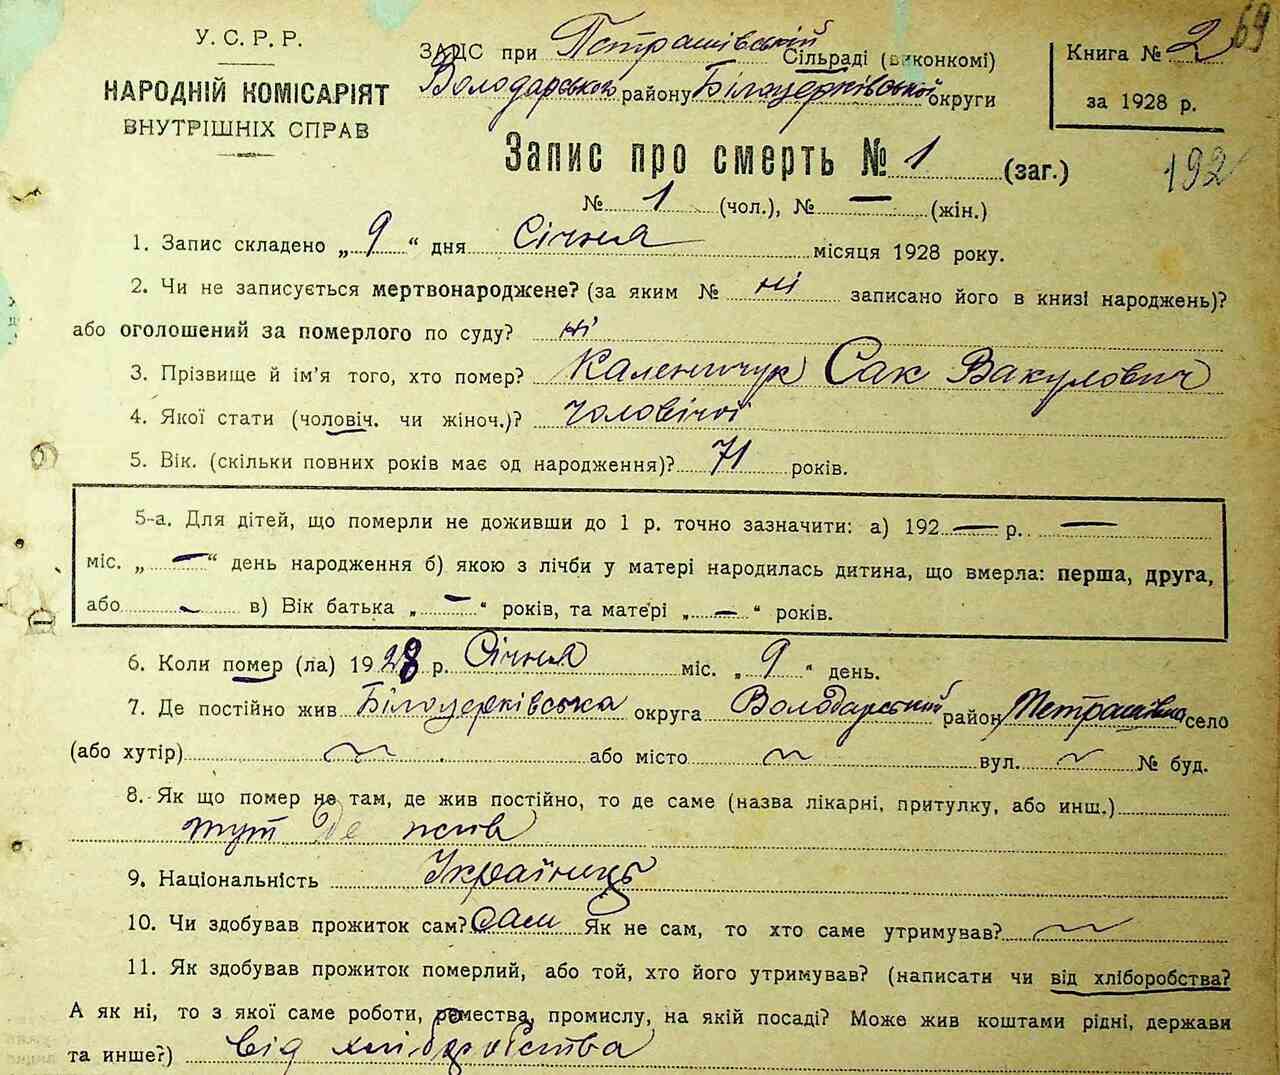 69
У. С. Р. Р.
НАРОДНІЙ КОМІСАРІЯТ
ВНУТРІШНІХ СПРАВ
ЗАЦС при Петрашівській Сільраді (виконкомі)
Володарського району Білоцерківської округи
Книга № 2
за 1928 р.
Запис про смерть № 1 (заг.)
192
№ 1 (чол.), № — (жін.)
1. Запис складено „ 9 “ дня Січня місяця 1928 року.
2. Чи не записується мертвонароджене? (за яким № ні записано його в книзі народжень)?
або оголошений за померлого по суду? ні
3. Прізвище й ім'я того, хто помер? Каленичук Сак Вакулович
4. Якої стати (чоловіч. чи жіноч.)? чоловічої
5. Вік. (скільки повних років має од народження)? 71 років.
5-а. Для дітей, що померли не доживши до 1 р. точно зазначити: а) 192 — р. —
міс. „ — “ день народження б) якою з лічби у матері народилась дитина, що вмерла: перша, друга,
або — в) Вік батька „ — “ років, та матері „ — “ років.
6. Коли помер (ла) 1928 р. Січня міс. „ 9 “ день.
7. Де постійно жив Білоцерківська округа Володарський район Петрашівка село
(або хутір) ~ або місто ~ вул. ~ № буд.
8. Як що помер не там, де жив постійно, то де саме (назва лікарні, притулку, або инш.)
тут де жив
9. Національність Українець
10. Чи здобував прожиток сам? Сам Як не сам, то хто саме утримував? ~
11. Як здобував прожиток померлий, або той, хто його утримував? (написати чи від хліборобства?
А як ні, то з якої саме роботи, ремества, промислу, на якій посаді? Може жив коштами рідні, держави
та инше?) від хліборобства